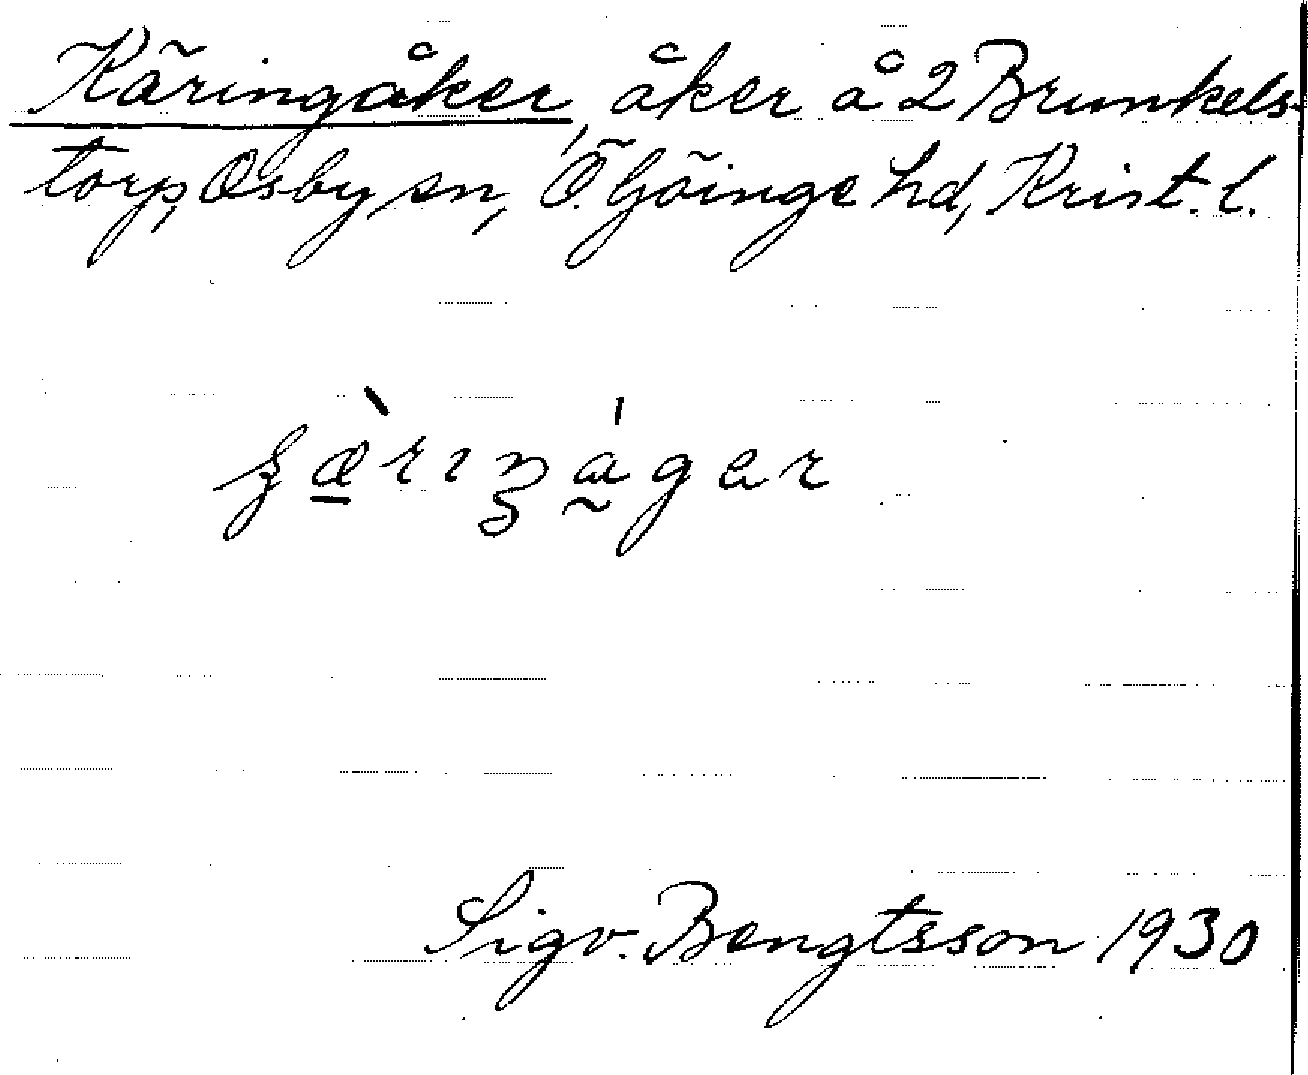 Käringåker, åker å 2 Brunkels-
torp, Osby sn, Ö. Göinge hd, Krist. l.
Sigv. Bengtsson 1930